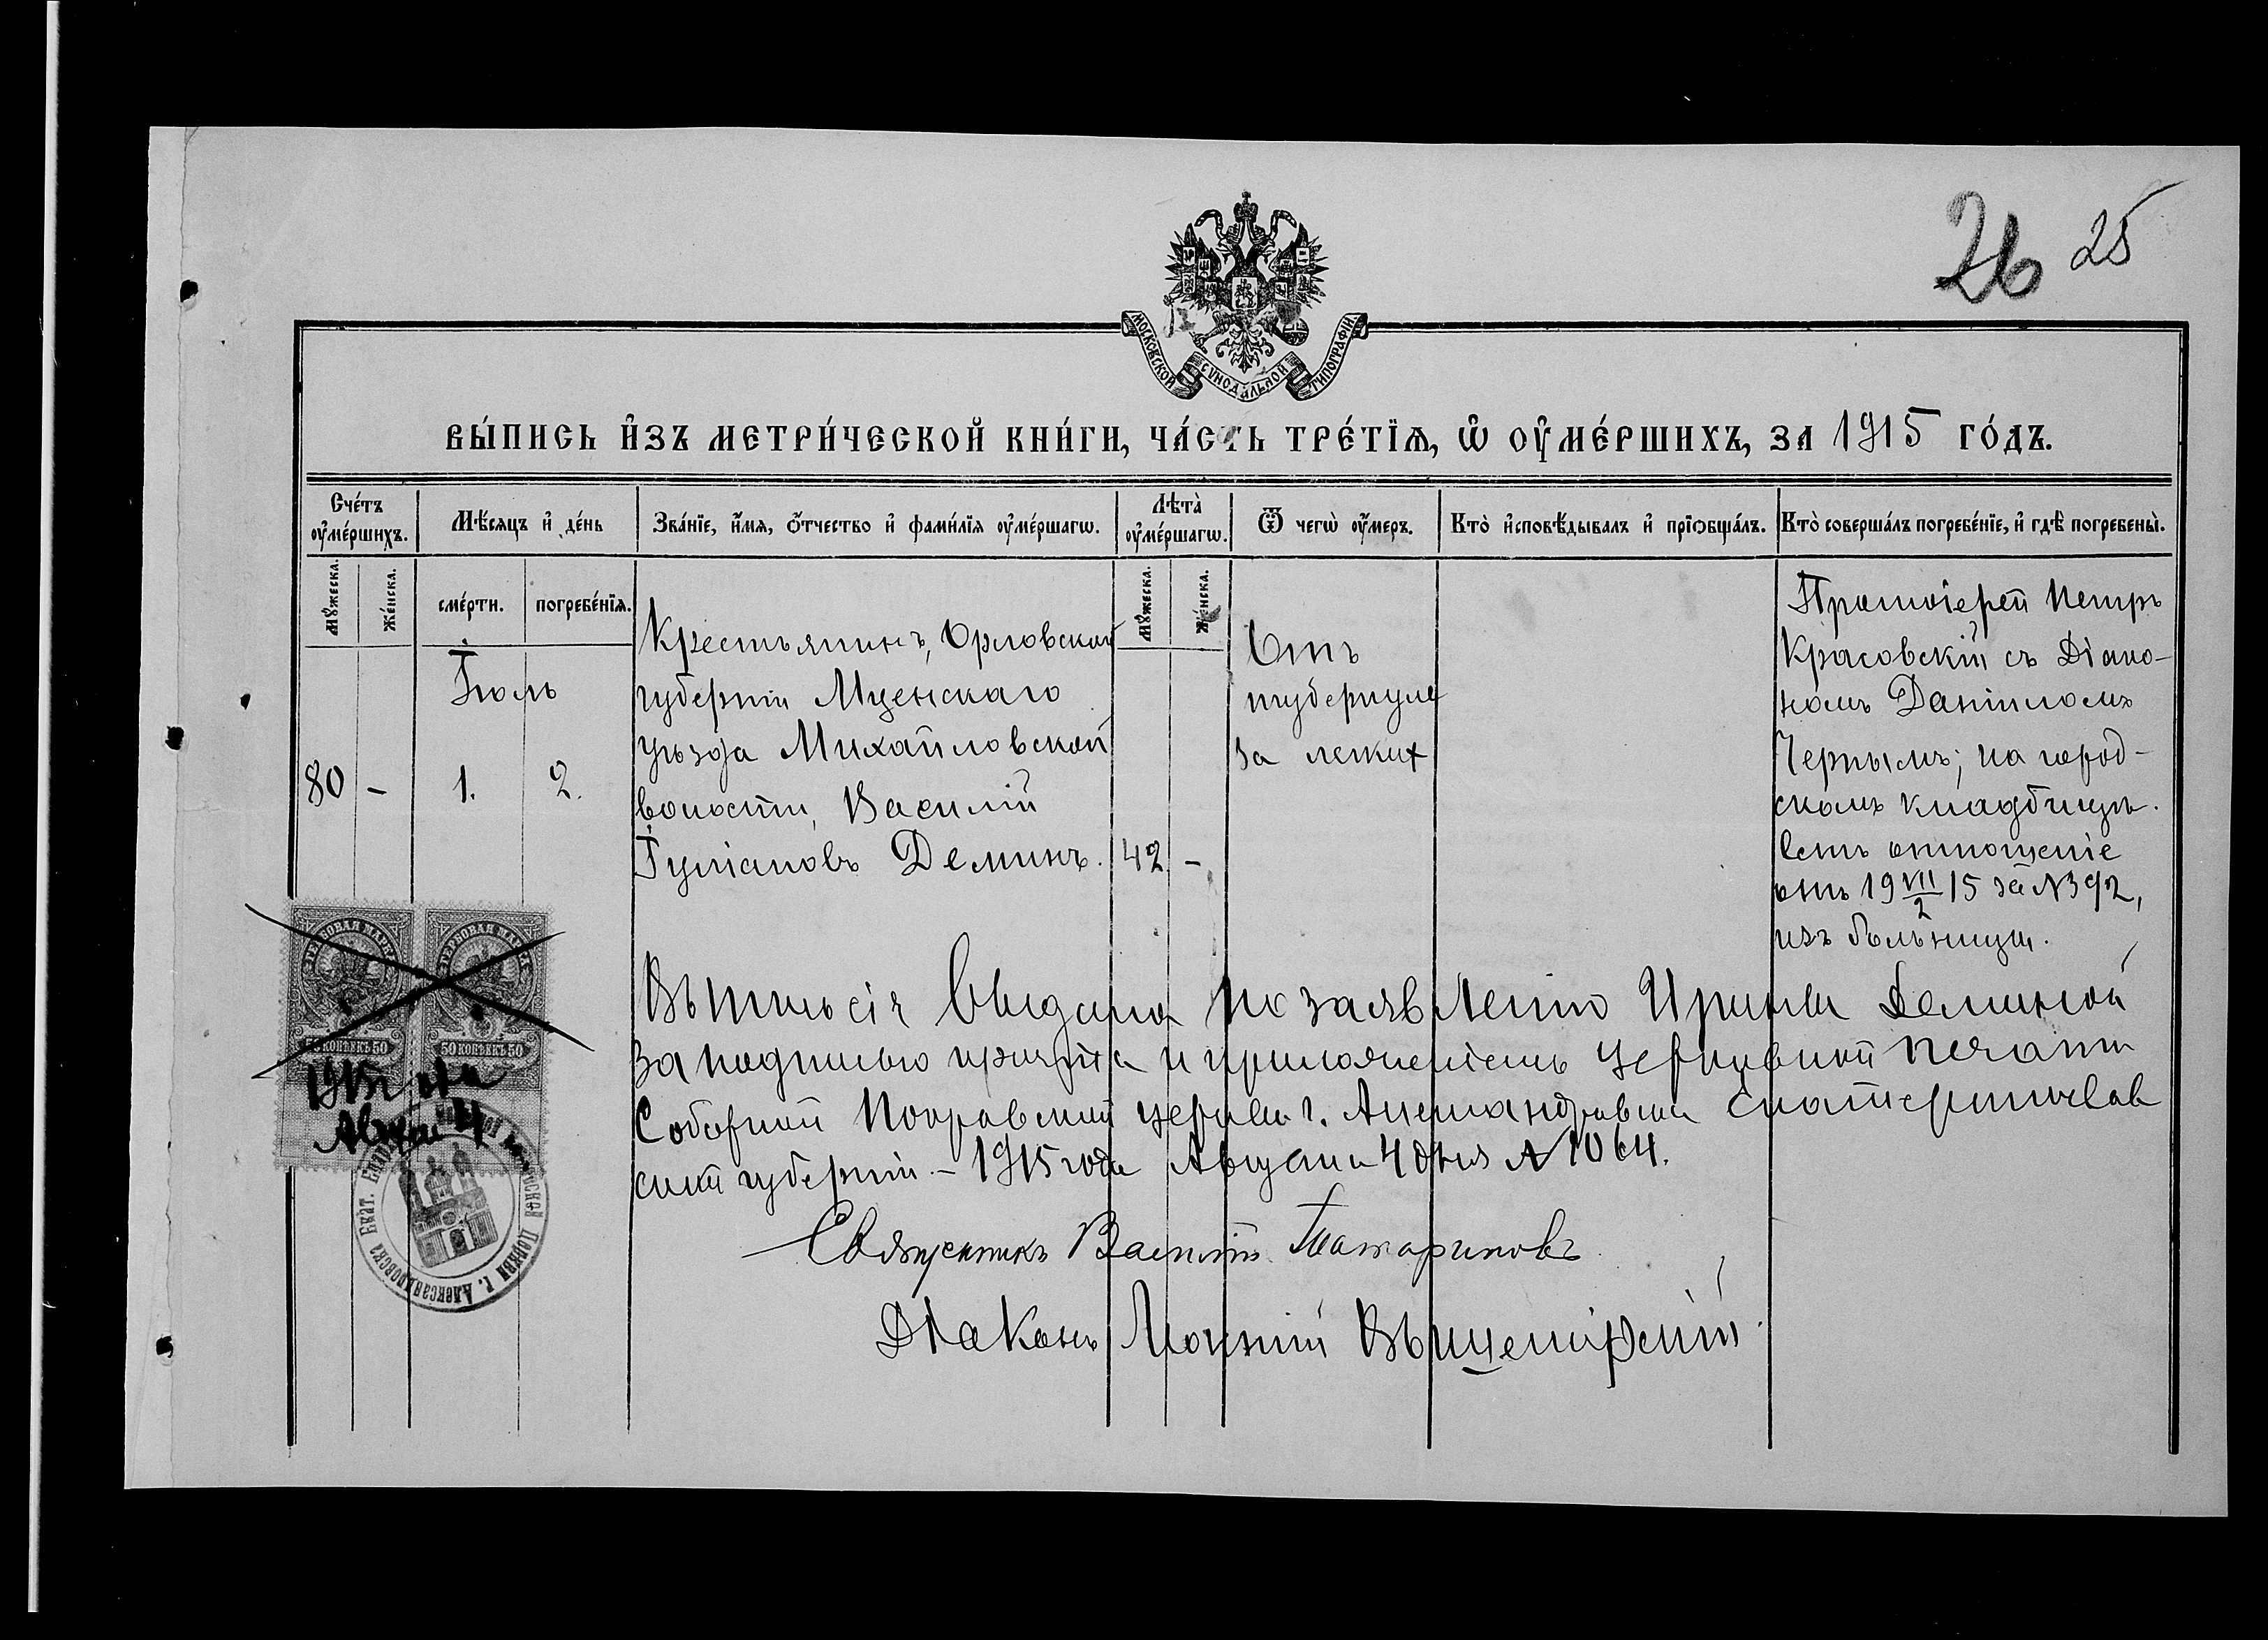 26 25
МОСКОВСКОЙ СѴНОДАЛЬНОЙ ТИПОГРАФІИ.
ВЫ́ПИСЬ И҆ЗЪ МЕТРИ́ЧЕСКОЙ КНИ́ГИ, ЧА́СТЬ ТРЕ́ТЇѦ, Ѡ҆ ОУ҆МЕ́РШИХЪ, ЗА 1915 ГО́ДЪ.
Сче́тъ оу҆ме́ршихъ.
Мѣ́сяцъ и҆ де́нь
Зва́нїе, и҆́мя, ѻ҆́тчество и҆ фами́лїя оу҆ме́ршагѡ.
Лѣта̀ оу҆ме́ршагѡ.
Ѿ чегѡ̀ оу҆́меръ.
Кто̀ и҆сповѣ́дывалъ и҆ прїѡбща́лъ.
Кто̀ соверша́лъ погребе́нїе, и҆ гдѣ̀ погребены̀.
Мꙋ́жеска.
Же́нска.
сме́рти.
погребе́нїя.
Мꙋ́жеска.
Же́нска.
Іюль
80 - 1. 2.
Крестьянинъ, Орловской
губерніи Мценскаго
уѣзда Михайловской
волости, Василій
Іуліановъ Деминъ.
42 -
Отъ
туберкуле
за легких
Протоіерей Петръ
Красовскій съ Діако-
номъ Даніиломъ
Чернымъ; на город-
скомъ кладбищѣ.
Есть отношеніе
отъ 19 VII/2 15 за № 392,
изъ больницы.
Выпись сія выдана по заявленію Ирины Деминой
за подписью причта и приложеніемъ церковной печати
Соборной Покровской церкви г. Александровска Екатеринослав
ской губерніи. – 1915 года Августа 4 дня № 1064.
Священникъ Василій Татариновъ
Діаконъ
ГЕРБОВАЯ МАРКА ГЕРБОВАЯ МАРКА
50 КОПѢЕКЪ 50 50 КОПѢЕКЪ 50
1915 года
Август 4
Церкви г. Александровска Екат. Епар.